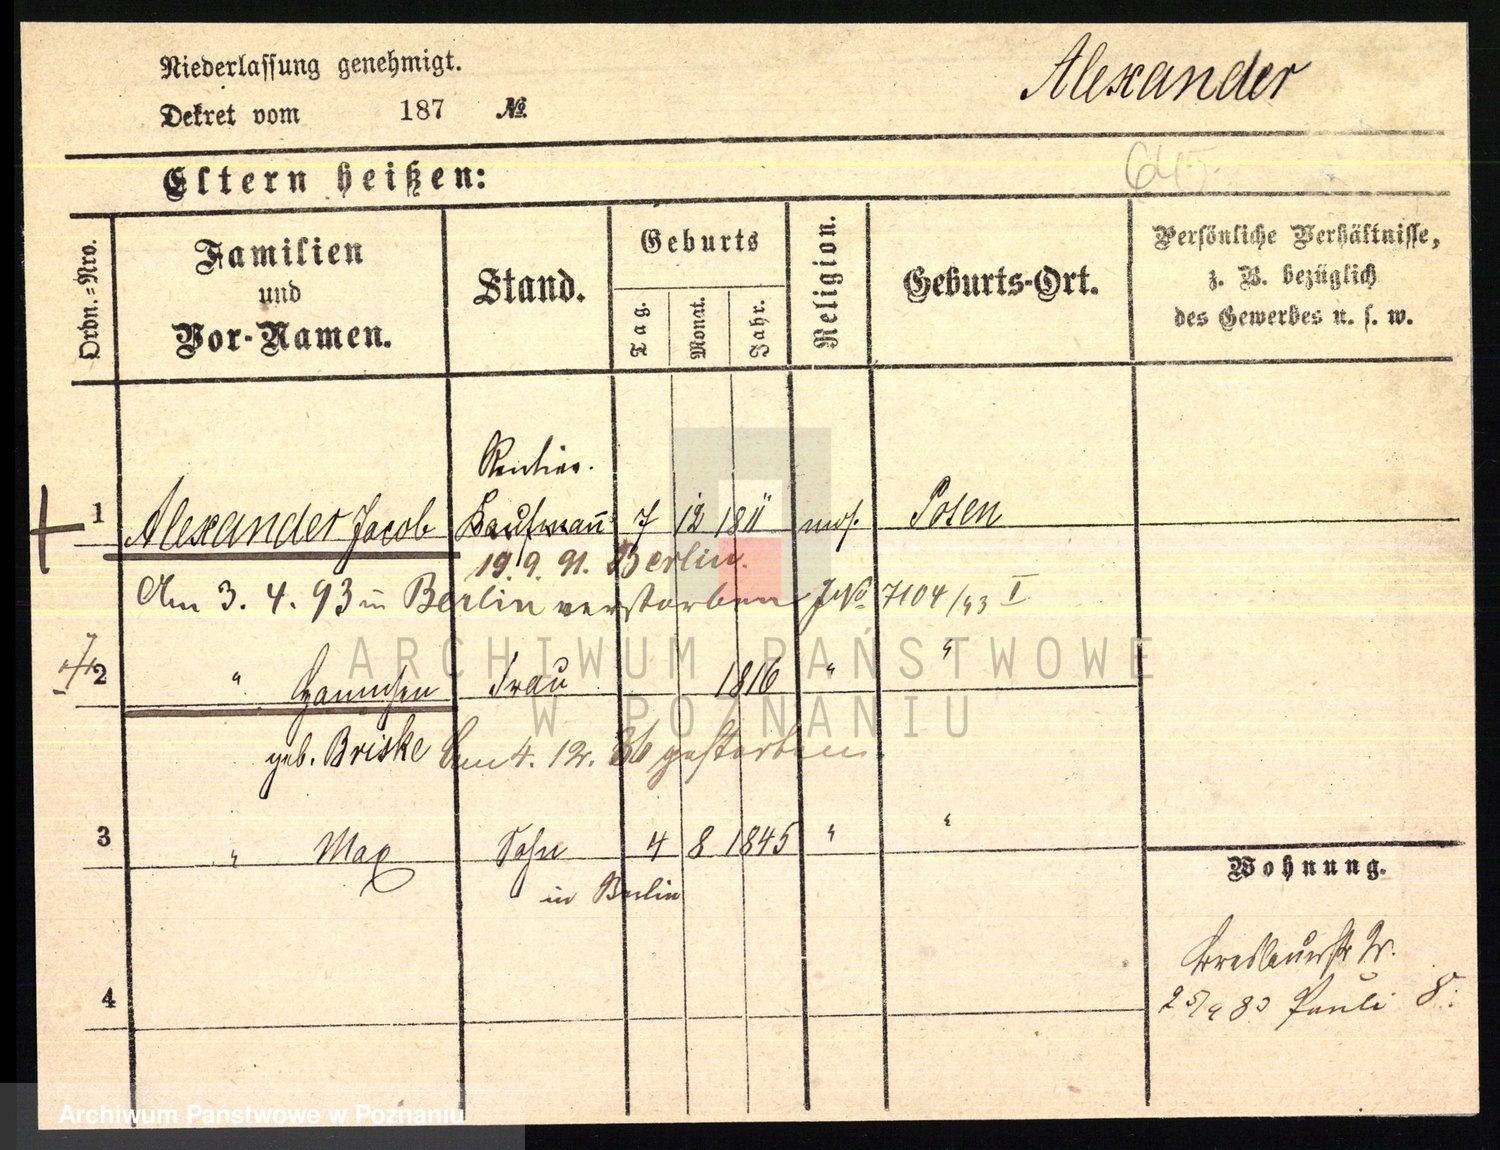 Niederlassung genehmigt.
Alexander
Dekret vom 187 No.
645
Eltern heißen:
Ordn.-Nro.
Familien
und
Vor-Namen.
Stand.
Geburts
Tag.
Monat.
Jahr.
Religion.
Geburts-Ort.
Persönliche Verhältnisse,
z. B. bezüglich
des Gewerbes u. s. w.
Rentier.
1 Alexander Jacob Kaufmann 7 12 1811 mos. Posen
19.9.91. Berlin.
Am 3. 4. 93 in Berlin verstorben J No 7104/93 I
2 " Hannchen Frau 1816 " "
geb. Briske Am 4. 12. 86 gestorben.
3 " Max Sohn 4 8 1845 " "
in Berlin
Wohnung.
Breslauerstr
4
25/9 83 Pauli 8.
ARCHIWUM PAŃSTWOWE
W POZNANIU
Archiwum Państwowe w Poznaniu